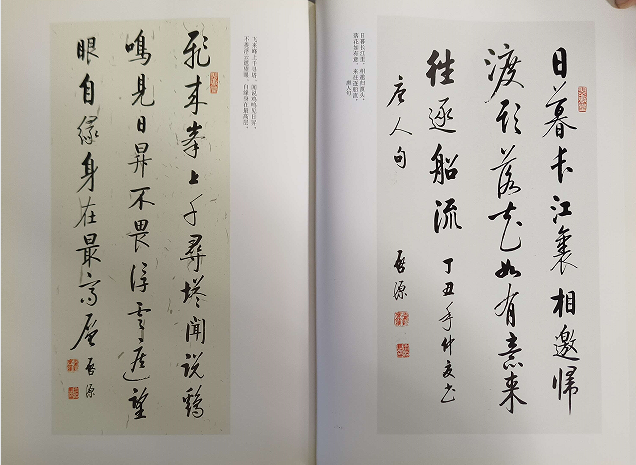 日暮长江裏相邀歸
渡頭落花如有意来
往逐船流 丁丑年仲夏书
唐人句 启源
日暮长江里，相邀归渡头。
落花如有意，来往逐船流。
唐人句
飛来峯上千尋塔聞說鷄
鳴見日昇不畏浮雲遮望
眼自緣身在最高層 启源
飞来峰上千寻塔，闻说鸡鸣见日升。
不畏浮云遮望眼，自缘身在最高层。